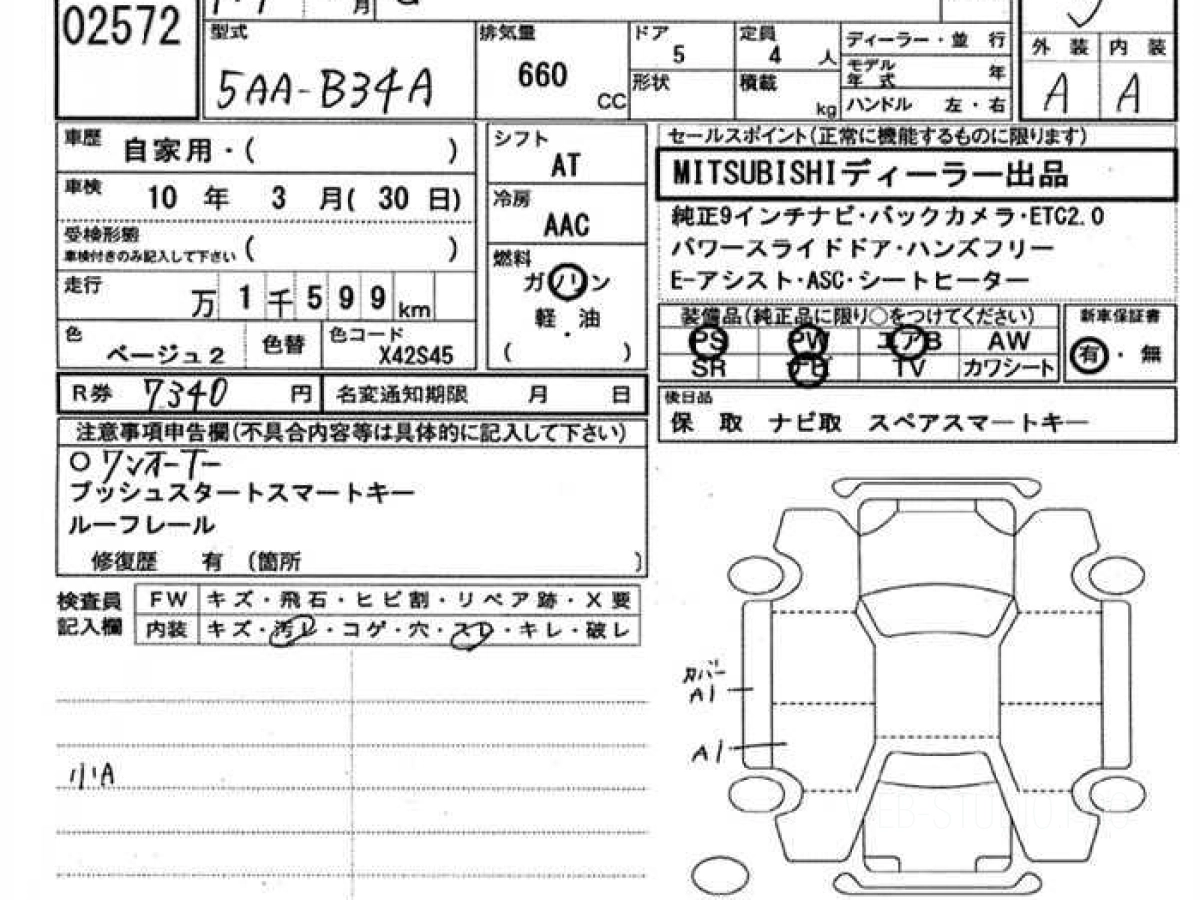 02572
月
型式
5AA-B34A
排気量
660
CC
ドア
5
形状
定員
4 人
積載
kg
ディーラー・並 行
モデル
年 式 年
ハンドル 左・右
外 装 内 装
A A
車歴
自家用・( )
車検
10 年 3 月( 30 日)
受検形態
車検付きのみ記入して下さい ( )
走行
万 1 千 5 9 9 km
色
ベージュ2
色替
色コード
X42S45
シフト
AT
冷房
AAC
燃料
ガソリン
軽・油
( )
セールスポイント(正常に機能するものに限ります)
MITSUBISHIディーラー出品
純正9インチナビ・バックカメラ・ETC2.0
パワースライドドア・ハンズフリー
E-アシスト・ASC・シートヒーター
装備品(純正品に限り○をつけてください)
PS PW エアB AW
SR ナビ TV カワシート
新車保証書
有・無
R券 7340 円
名変通知期限 月 日
後日品
保 取 ナビ取 スペアスマートキー
注意事項申告欄(不具合内容等は具体的に記入して下さい)
○ワンオーナー
プッシュスタートスマートキー
ルーフレール
修復歴 有 (箇所 )
検査員
記入欄
FW キズ・飛石・ヒビ割・リペア跡・X要
内装 キズ・汚レ・コゲ・穴・スレ・キレ・破レ
カバー
A1
A1
小A